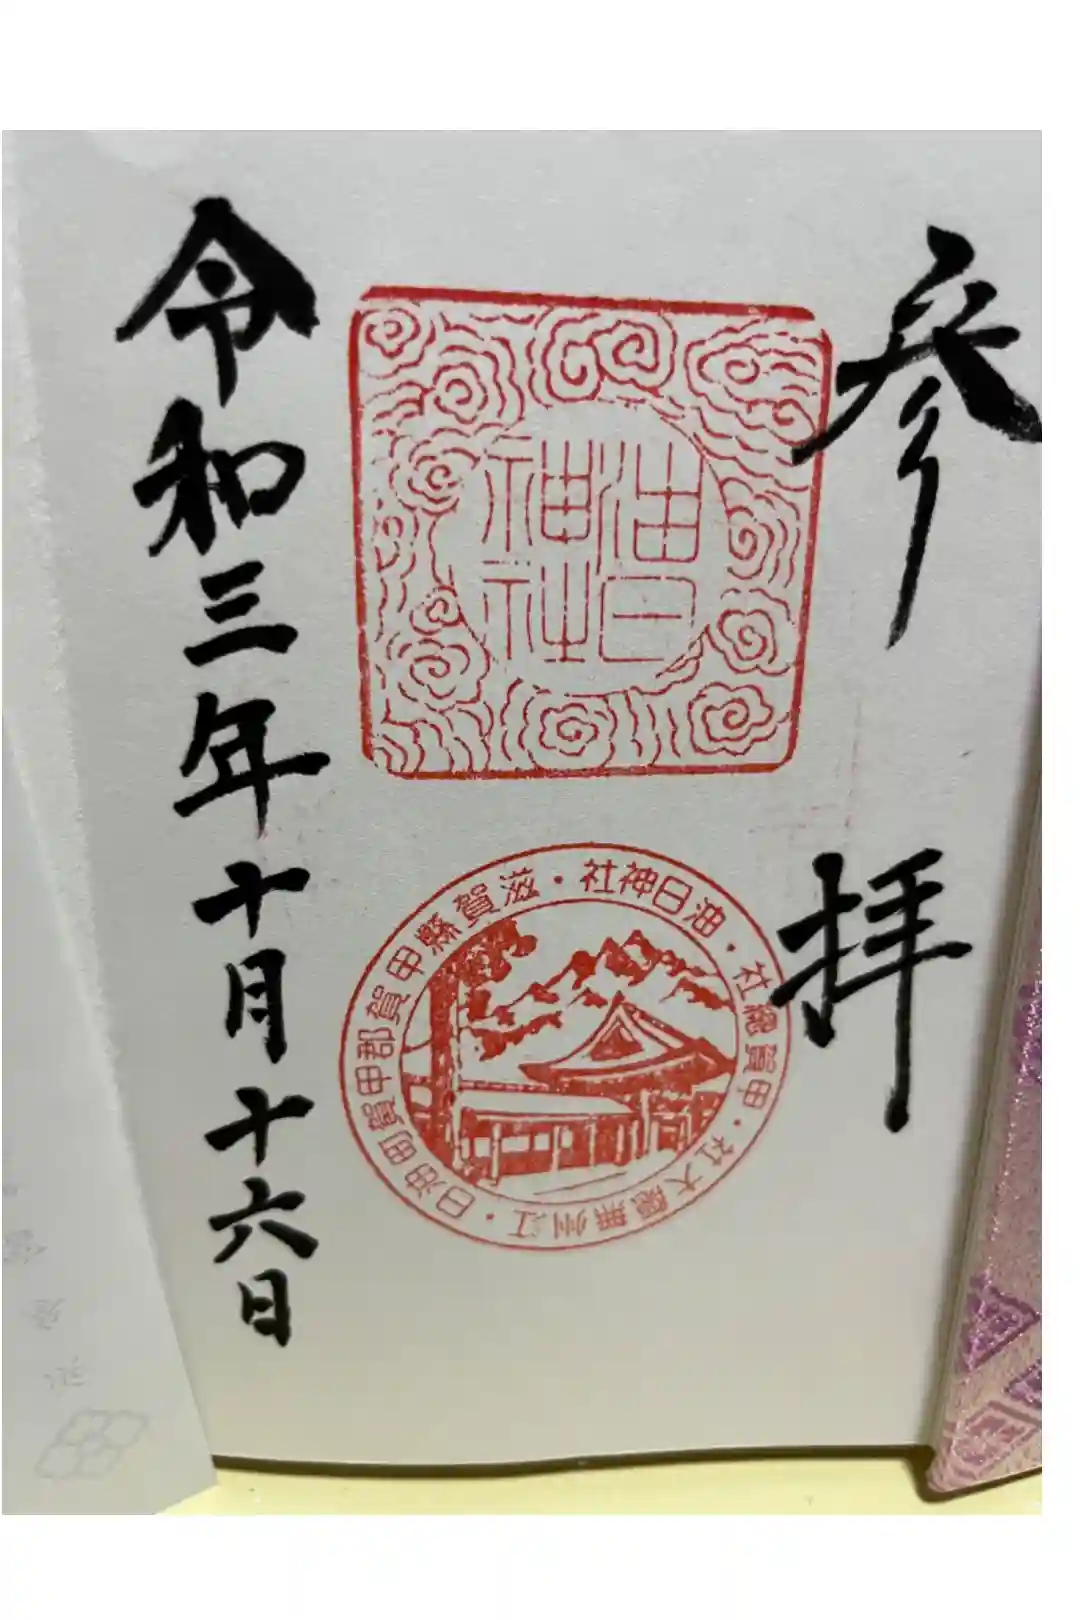 参拝
油日
神社
油日神社・滋賀縣甲賀郡甲賀町油日・江州無隠大社・甲賀總社・
令和三年十月十六日